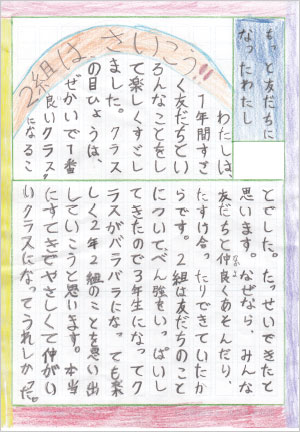 もっと友だちに
なったわたし
2組は、さいこう!!
わたしは、
1年間すご
く友だちとい
ろんなことをし
て楽しくすごし
ました。クラス
の目ひょうは、
せかいで1番
良いクラス
になるこ
とでした。たっせいできたと
思います。なぜなら、みんな
友だちと仲良くあそんだり、
たすけ合ったりできていたか
らです。2組は友だちのこと
について、べん強をいっぱいし
てきたので3年生になってク
ラスがバラバラになっても楽
しく2年2組のことを思い出
していこうと思います。本当
にすてきでやさしくて仲がい
いクラスになってうれしかった。